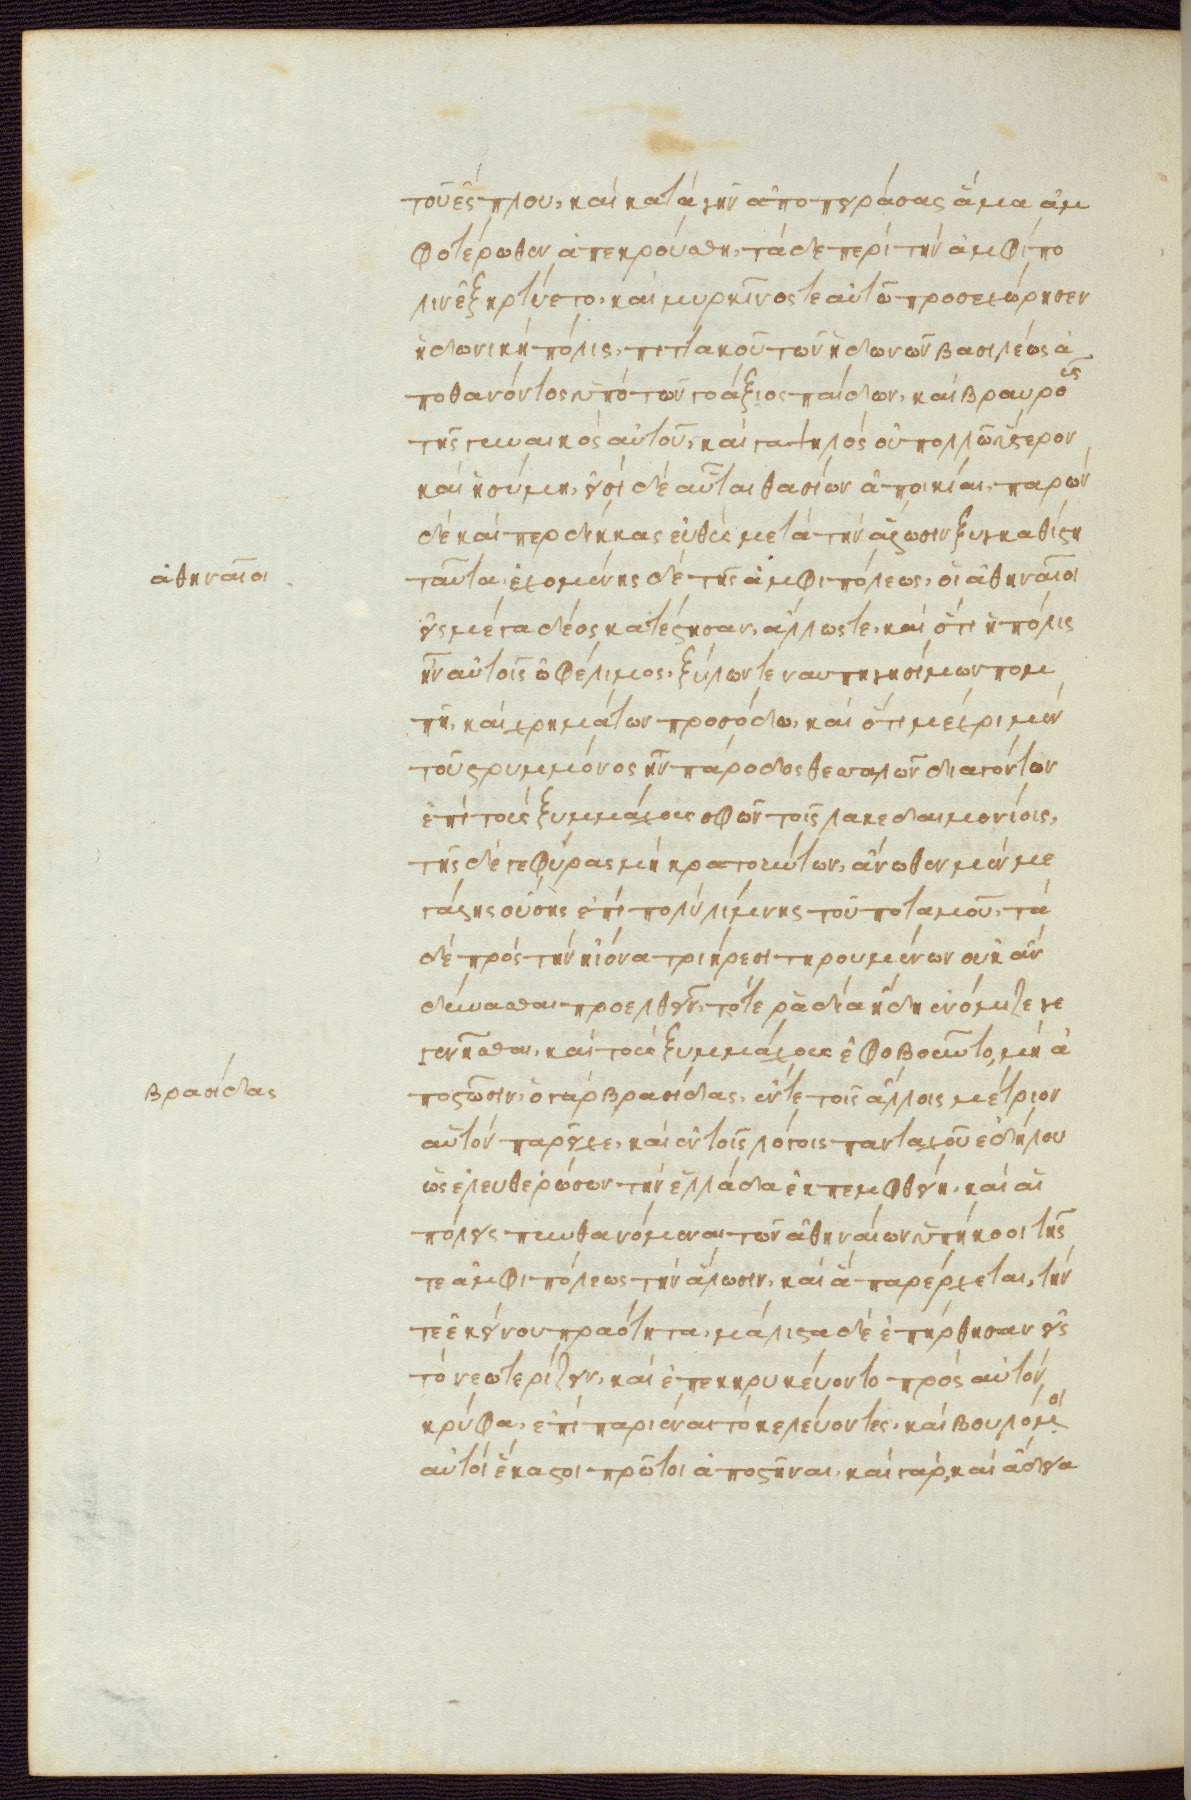 τοῦ ἔσπλου, καὶ κατὰ γῆν ἀποπειράσας ἅμα ἀμ
φοτέρωθεν ἀπεκρούσθη, τὰ δὲ περὶ τὴν ἀμφίπο
λιν ἐξηρτύετο, καὶ μυρκινός τε αὐτῶ προσεχώρησεν
ἠδωνικὴ πόλις, πιττακοῦ τῶν ἠδωνῶν βασιλέως ἀ
ποθανόντος ὑπὸ τῶν γοάξιος παίδων, καὶ βραυροῦς
τῆς γυναικὸς αὐτοῦ, καὶ γαψηλὸς οὐ πολλῶ ὕστερον
καὶ ἠσύμη, εἰσὶ δὲ αὗται θασίων ἀποικίαι, παρὼν
δὲ καὶ περδήκας εὐθὺς μετὰ τὴν ἅλωσιν ξυγκαθίστη
ἀθηναῖοι
ταῦτα. ἐχομένης δὲ τῆς ἀμφιπόλεως, οἱ ἀθηναῖοι
εἰς μέγα δέος κατέστησαν, ἄλλως τε, καὶ ὅτι ἡ πόλις
ἦν αὐτοῖς ὠφέλιμος, ξύλων τε ναυπηγησίμων πομ
πῆ, καὶ χρημάτων προσόδω, καὶ ὅτι μέχρι μὲν
τοῦ στρυμμόνος ἦν πάροδος θεσσαλῶν διαγόντων
ἐπὶ τοὺς ξυμμάχους σφῶν τοῖς λακεδαιμονίοις,
τῆς δὲ γεφύρας μὴ κρατούντων, ἄνωθεν μὲν με
γάλης οὔσης ἐπὶ πολὺ λίμνης τοῦ ποταμοῦ, τὰ
δὲ πρὸς τὴν ἠϊόνα τριήρεσι τηρουμένων οὐκ ἂν
δύνασθαι προελθεῖν, τότε ῥᾴδια ἤδη ἐνόμιζε γε
γενῆσθαι, καὶ τοὺς ξυμμάχους ἐφοβοῦντο, μὴ ἀ
βρασίδας
ποστῶσιν, ὁ γὰρ βρασίδας, ἔν τε τοῖς ἄλλοις μέτριον
αὑτὸν παρεῖχε, καὶ ἐν τοῖς λόγοις πανταχοῦ ἐδήλου
ὡς ἐλευθερώσων τὴν ἑλλάδα ἐκπεμφθείη, καὶ αἱ
πόλεις πυνθανόμεναι τῶν ἀθηναίων ὑπήκοοι τῆς
τε ἀμφιπόλεως τὴν ἅλωσιν, καὶ ἃ παρέρχεται, τὴν
τε ἐκείνου πραότητα, μάλιστα δὲ ἐπήρθησαν εἰς
τὸ νεωτερίζειν, καὶ ἐπεκηρυκεύοντο πρὸς αὐτὸν
κρύφα, ἐπιπαριέναι τὸ κελεύοντες, καὶ βουλόμοι
αὐτοὶ ἕκαστοι πρῶτοι ἀποστῆναι, καὶ γὰρ, καὶ ἄδεια